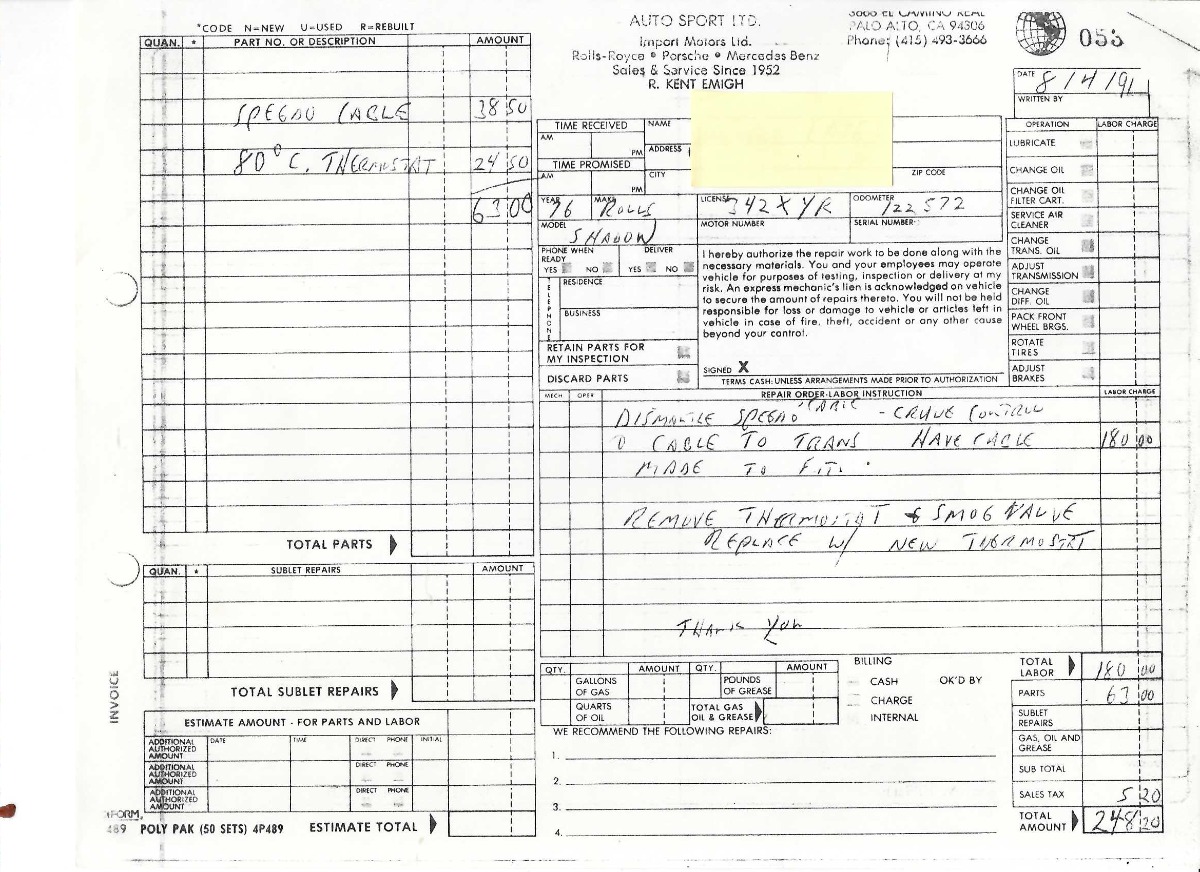 *CODE N=NEW U=USED R=REBUILT
QUAN. * PART NO. OR DESCRIPTION AMOUNT
SPEEDO CABLE 38 50
80°C. THERMOSTAT 24 50
63 00
TOTAL PARTS
QUAN. * SUBLET REPAIRS AMOUNT
TOTAL SUBLET REPAIRS
INVOICE
ESTIMATE AMOUNT - FOR PARTS AND LABOR
ADDITIONAL AUTHORIZED AMOUNT DATE TIME DIRECT PHONE INITIAL
ADDITIONAL AUTHORIZED AMOUNT DIRECT PHONE
ADDITIONAL AUTHORIZED AMOUNT DIRECT PHONE
FORM
489 POLY PAK (50 SETS) 4P489 ESTIMATE TOTAL
AUTO SPORT LTD.
Import Motors Ltd.
Rolls-Royce • Porsche • Mercedes Benz
Sales & Service Since 1952
R. KENT EMIGH
EL CAMINO REAL
PALO ALTO, CA 94306
Phone: (415) 493-3666
DATE 8/4/91
WRITTEN BY
TIME RECEIVED NAME
AM PM ADDRESS
TIME PROMISED CITY ZIP CODE
AM PM
YEAR 76 MAKE ROLLS LICENSE 342XYR ODOMETER 122572
MODEL SHADOW MOTOR NUMBER SERIAL NUMBER
PHONE WHEN READY DELIVER
YES NO YES NO
TELEPHONE RESIDENCE
BUSINESS
RETAIN PARTS FOR
MY INSPECTION
DISCARD PARTS
I hereby authorize the repair work to be done along with the
necessary materials. You and your employees may operate
vehicle for purposes of testing, inspection or delivery at my
risk. An express mechanic's lien is acknowledged on vehicle
to secure the amount of repairs thereto. You will not be held
responsible for loss or damage to vehicle or articles left in
vehicle in case of fire, theft, accident or any other cause
beyond your control.
SIGNED X
TERMS CASH: UNLESS ARRANGEMENTS MADE PRIOR TO AUTHORIZATION
OPERATION LABOR CHARGE
LUBRICATE
CHANGE OIL
CHANGE OIL
FILTER CART.
SERVICE AIR
CLEANER
CHANGE
TRANS. OIL
ADJUST
TRANSMISSION
CHANGE
DIFF. OIL
PACK FRONT
WHEEL BRGS.
ROTATE
TIRES
ADJUST
BRAKES
MECH OPER REPAIR ORDER-LABOR INSTRUCTION LABOR CHARGE
DISMANTLE SPEEDO CABLE - CRUISE CONTROL
CABLE TO TRANS HAVE CABLE 180 00
MADE TO FIT.
REMOVE THERMOSTAT & SMOG VALVE
REPLACE W/ NEW THERMOSTAT
THANK YOU
QTY. AMOUNT QTY. AMOUNT
GALLONS OF GAS POUNDS OF GREASE
QUARTS OF OIL TOTAL GAS OIL & GREASE
BILLING
CASH OK'D BY
CHARGE
INTERNAL
WE RECOMMEND THE FOLLOWING REPAIRS:
1.
2.
3.
4.
TOTAL LABOR 180 00
PARTS 63 00
SUBLET REPAIRS
GAS, OIL AND GREASE
SUB TOTAL
SALES TAX 5 20
TOTAL AMOUNT 248 20